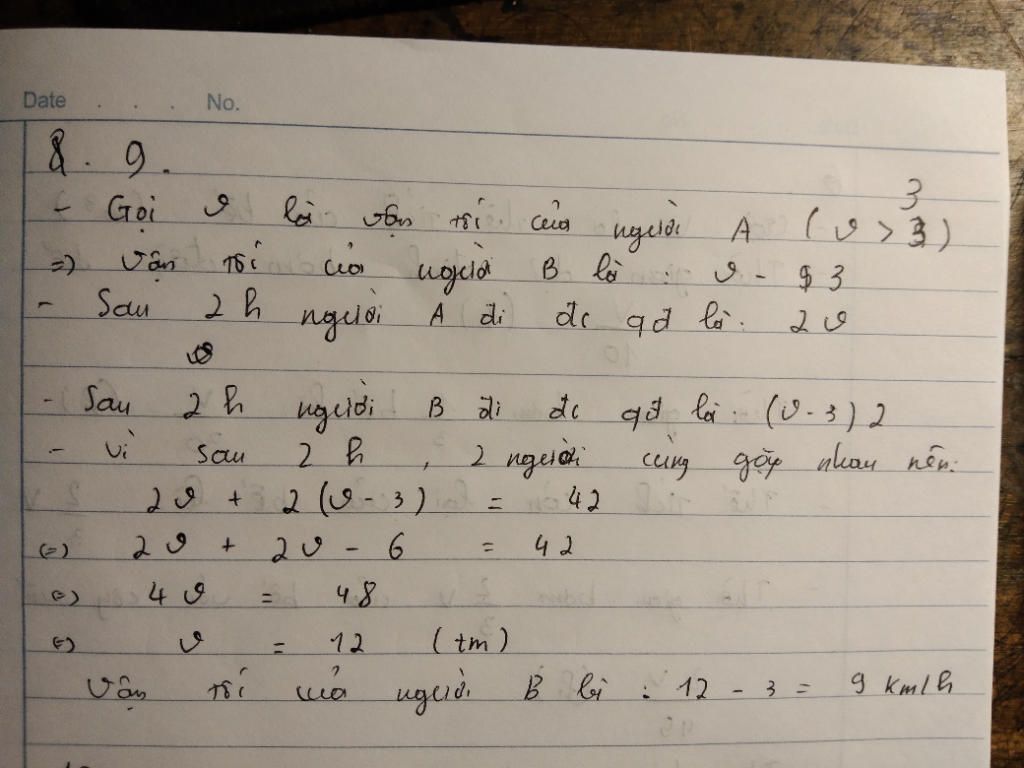 Date . . . No.
8. 9.
- Gọi v là vận tốc của người A (v > 3)
=) vận tốc của người B là : v - 3
- Sau 2h người A đi đc qđ là : 2v
v
- Sau 2h người B đi đc qđ là : (v - 3) 2
- Vì sau 2h, 2 người cùng gặp nhau nên:
2v + 2 (v - 3) = 42
(=) 2v + 2v - 6 = 42
(=) 4v = 48
(=) v = 12 (tm)
Vận tốc của người B là : 12 - 3 = 9 km/h